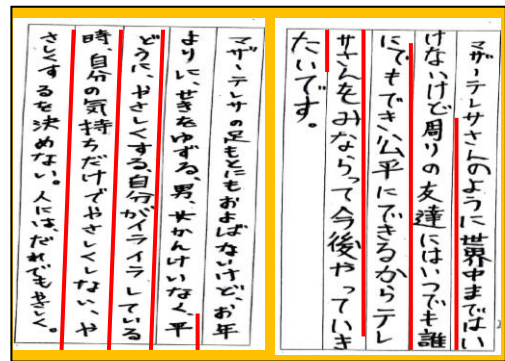 マザーテレサさんのように世界中まではい
けないけど周りの友達にはいつでも誰
にでもでき公平にできるからテレ
サさんをみならって今後やっていき
たいです。
マザーテレサの足もとにもおよばないけど、お年
よりに、せきをゆずる、男、女かんけいなく、平
どうに、やさしくする、自分がイライラしている
時、自分の気持ちだけでやさしくしない、や
さしくするを決めない。人には、だれでもやさしく。